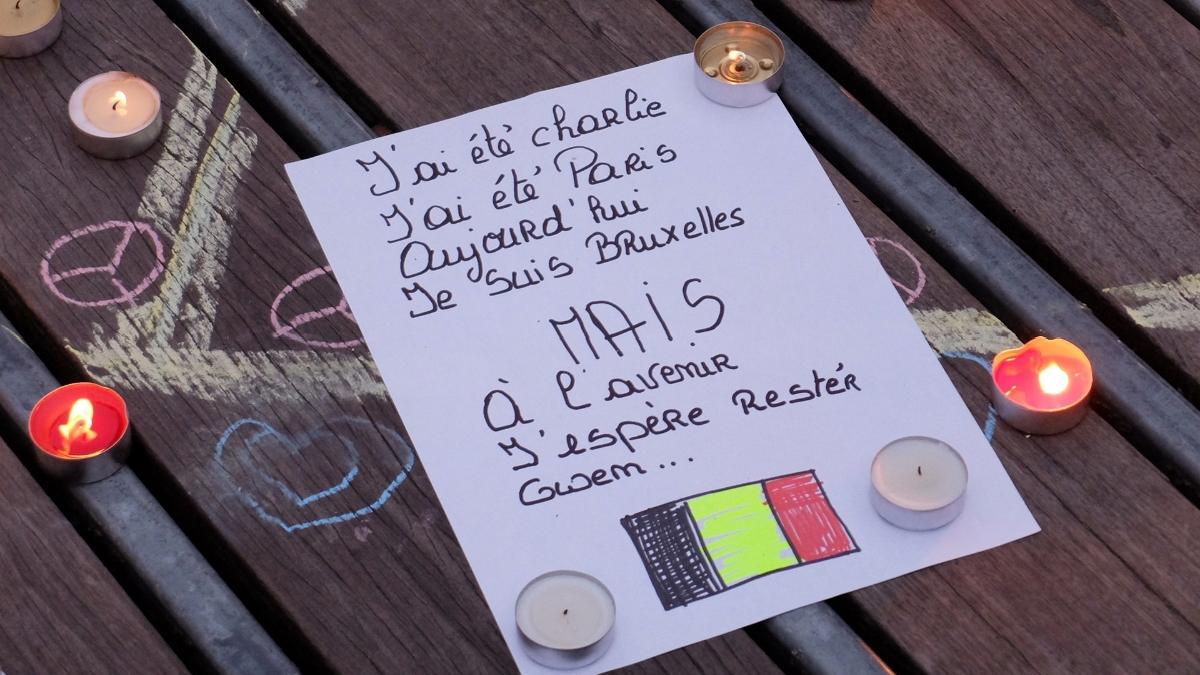 J'ai été charlie
J'ai été Paris
Aujourd'hui
Je suis Bruxelles
MAIS
À l'avenir
J'espère Restér
Gwem...